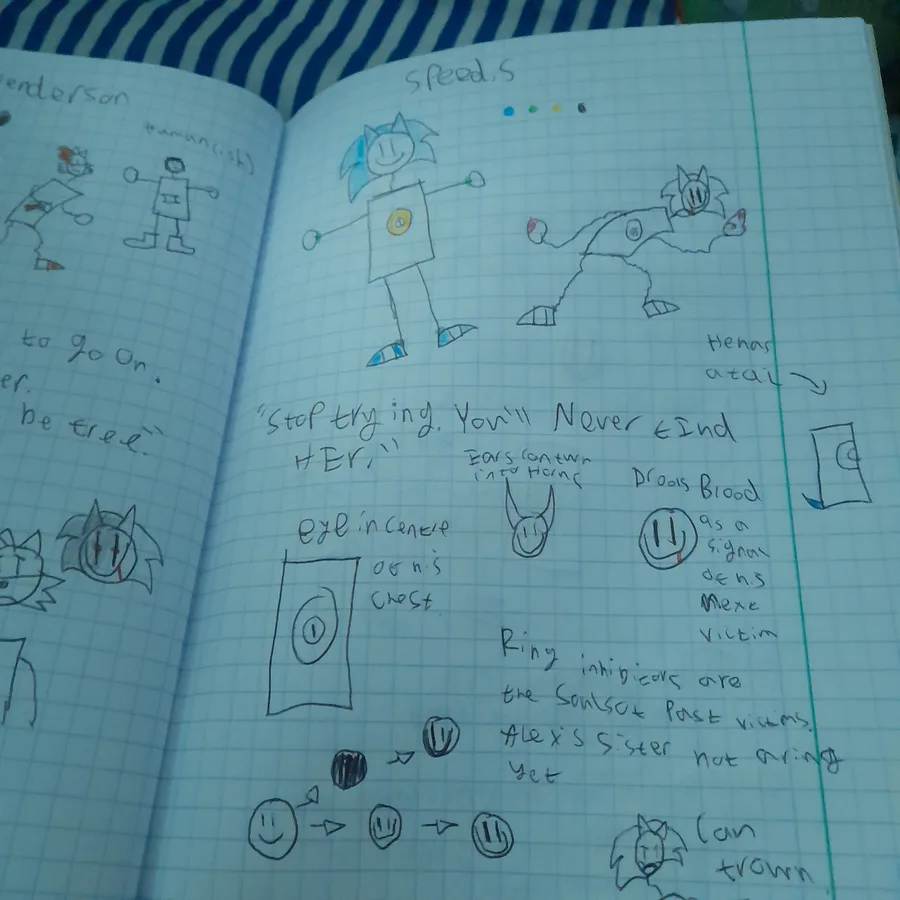 enderson
Human(ish)
to go on.
er.
be tree."
Speed.S
He has
a tail
"Stop trying. You'll Never tInd
HEr."
Ears can turn
into Horns
Drools Blood
as a
signal
of his
Next
victim
eye in centre
of his
chest
Ring inhibitors are
the Souls of Past victims.
Alex's Sister not a ring
yet
Can